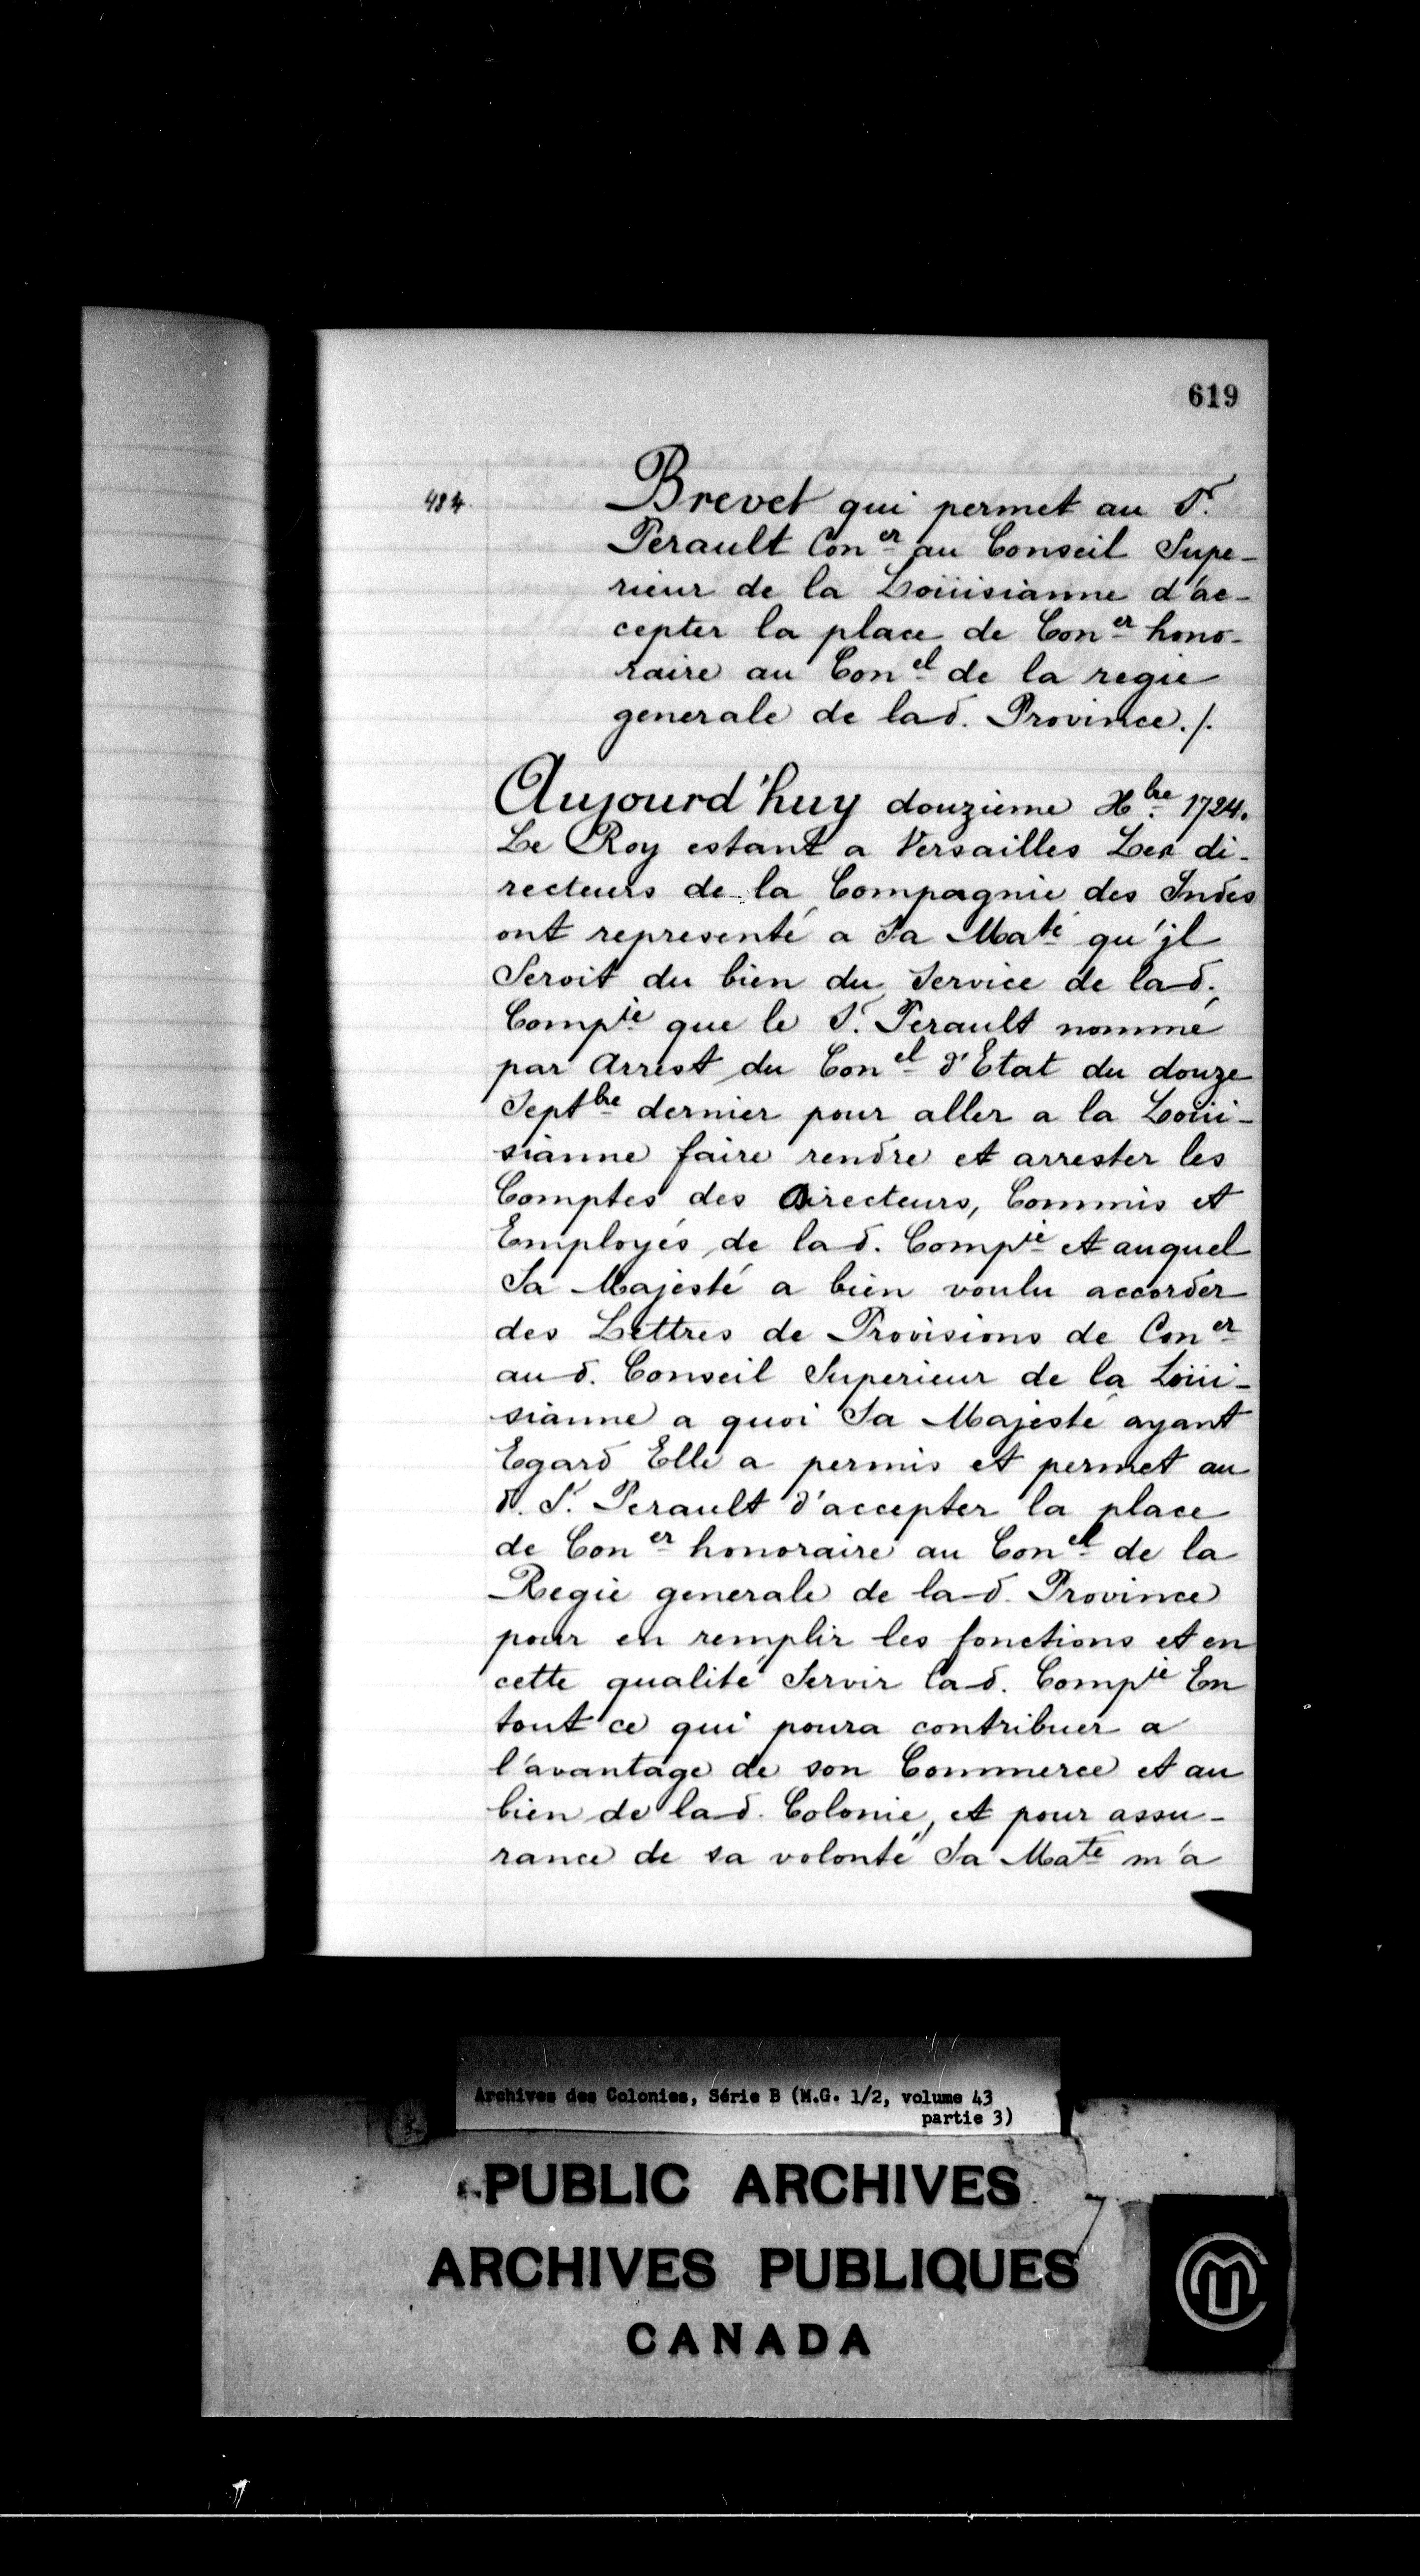 619
484.
Brevet qui permet au Sr.
Perault Coner au Conseil Supe-
rieur de la Loüisianne d'ac-
cepter la place de Coner hono-
raire au Conel de la regie
generale de lad. Province./.
Aujourd'huy douzieme Xbre 1724.
Le Roy estant a Versailles Les di-
recteurs de la Compagnie des Indes
ont representé a Sa Maté qu'jl
Seroit du bien du Service de lad.
Compie que le Sr. Perault nommé
par Arrest du Conel d'Etat du douze
Septbre dernier pour aller a la Loüi-
sianne faire rendre et arrester les
Comptes des Directeurs, Commis et
Employés de lad. Compie et auquel
Sa Majesté a bien voulu accorder
des Lettres de Provisions de Coner
aud. Conseil Superieur de la Loüi-
sianne a quoi Sa Majesté ayant
Egard Elle a permis et permet au
d. Sr. Perault d'accepter la place
de Coner honoraire au Conel de la
Regie generale de lad. Province
pour en remplir les fonctions et en
cette qualité Servir lad. Compie En
tout ce qui poura contribuer a
l'avantage de son Commerce et au
bien de lad. Colonie, et pour assu-
rance de sa volonté Sa Maté m'a
Archives des Colonies, Série B (M.G. 1/2, volume 43
partie 3)
PUBLIC ARCHIVES
ARCHIVES PUBLIQUES
CANADA